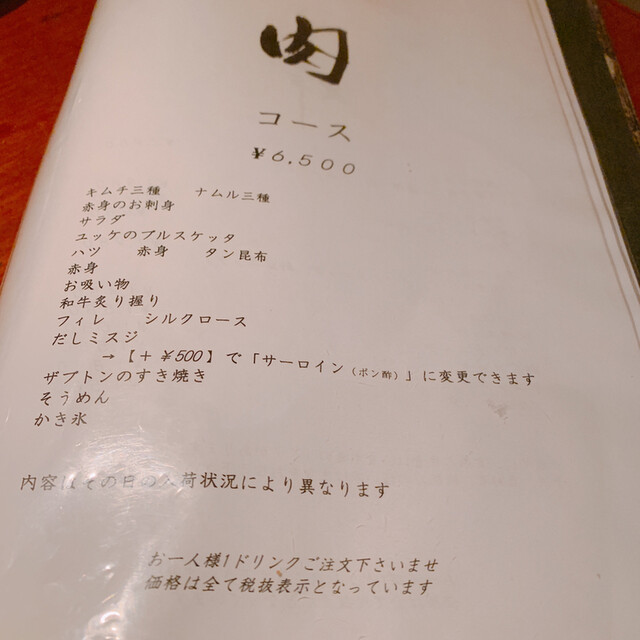 肉
コース
¥6,500
キムチ三種　ナムル三種
赤身のお刺身
サラダ
ユッケのブルスケッタ
ハツ　赤身　タン昆布
赤身
お吸い物
和牛炙り握り
フィレ　シルクロース
だしミスジ
→【＋¥500】で「サーロイン（ポン酢）」に変更できます
ザブトンのすき焼き
そうめん
かき氷
内容はその日の入荷状況により異なります
お一人様1ドリンクご注文下さいませ
価格は全て税抜表示となっています